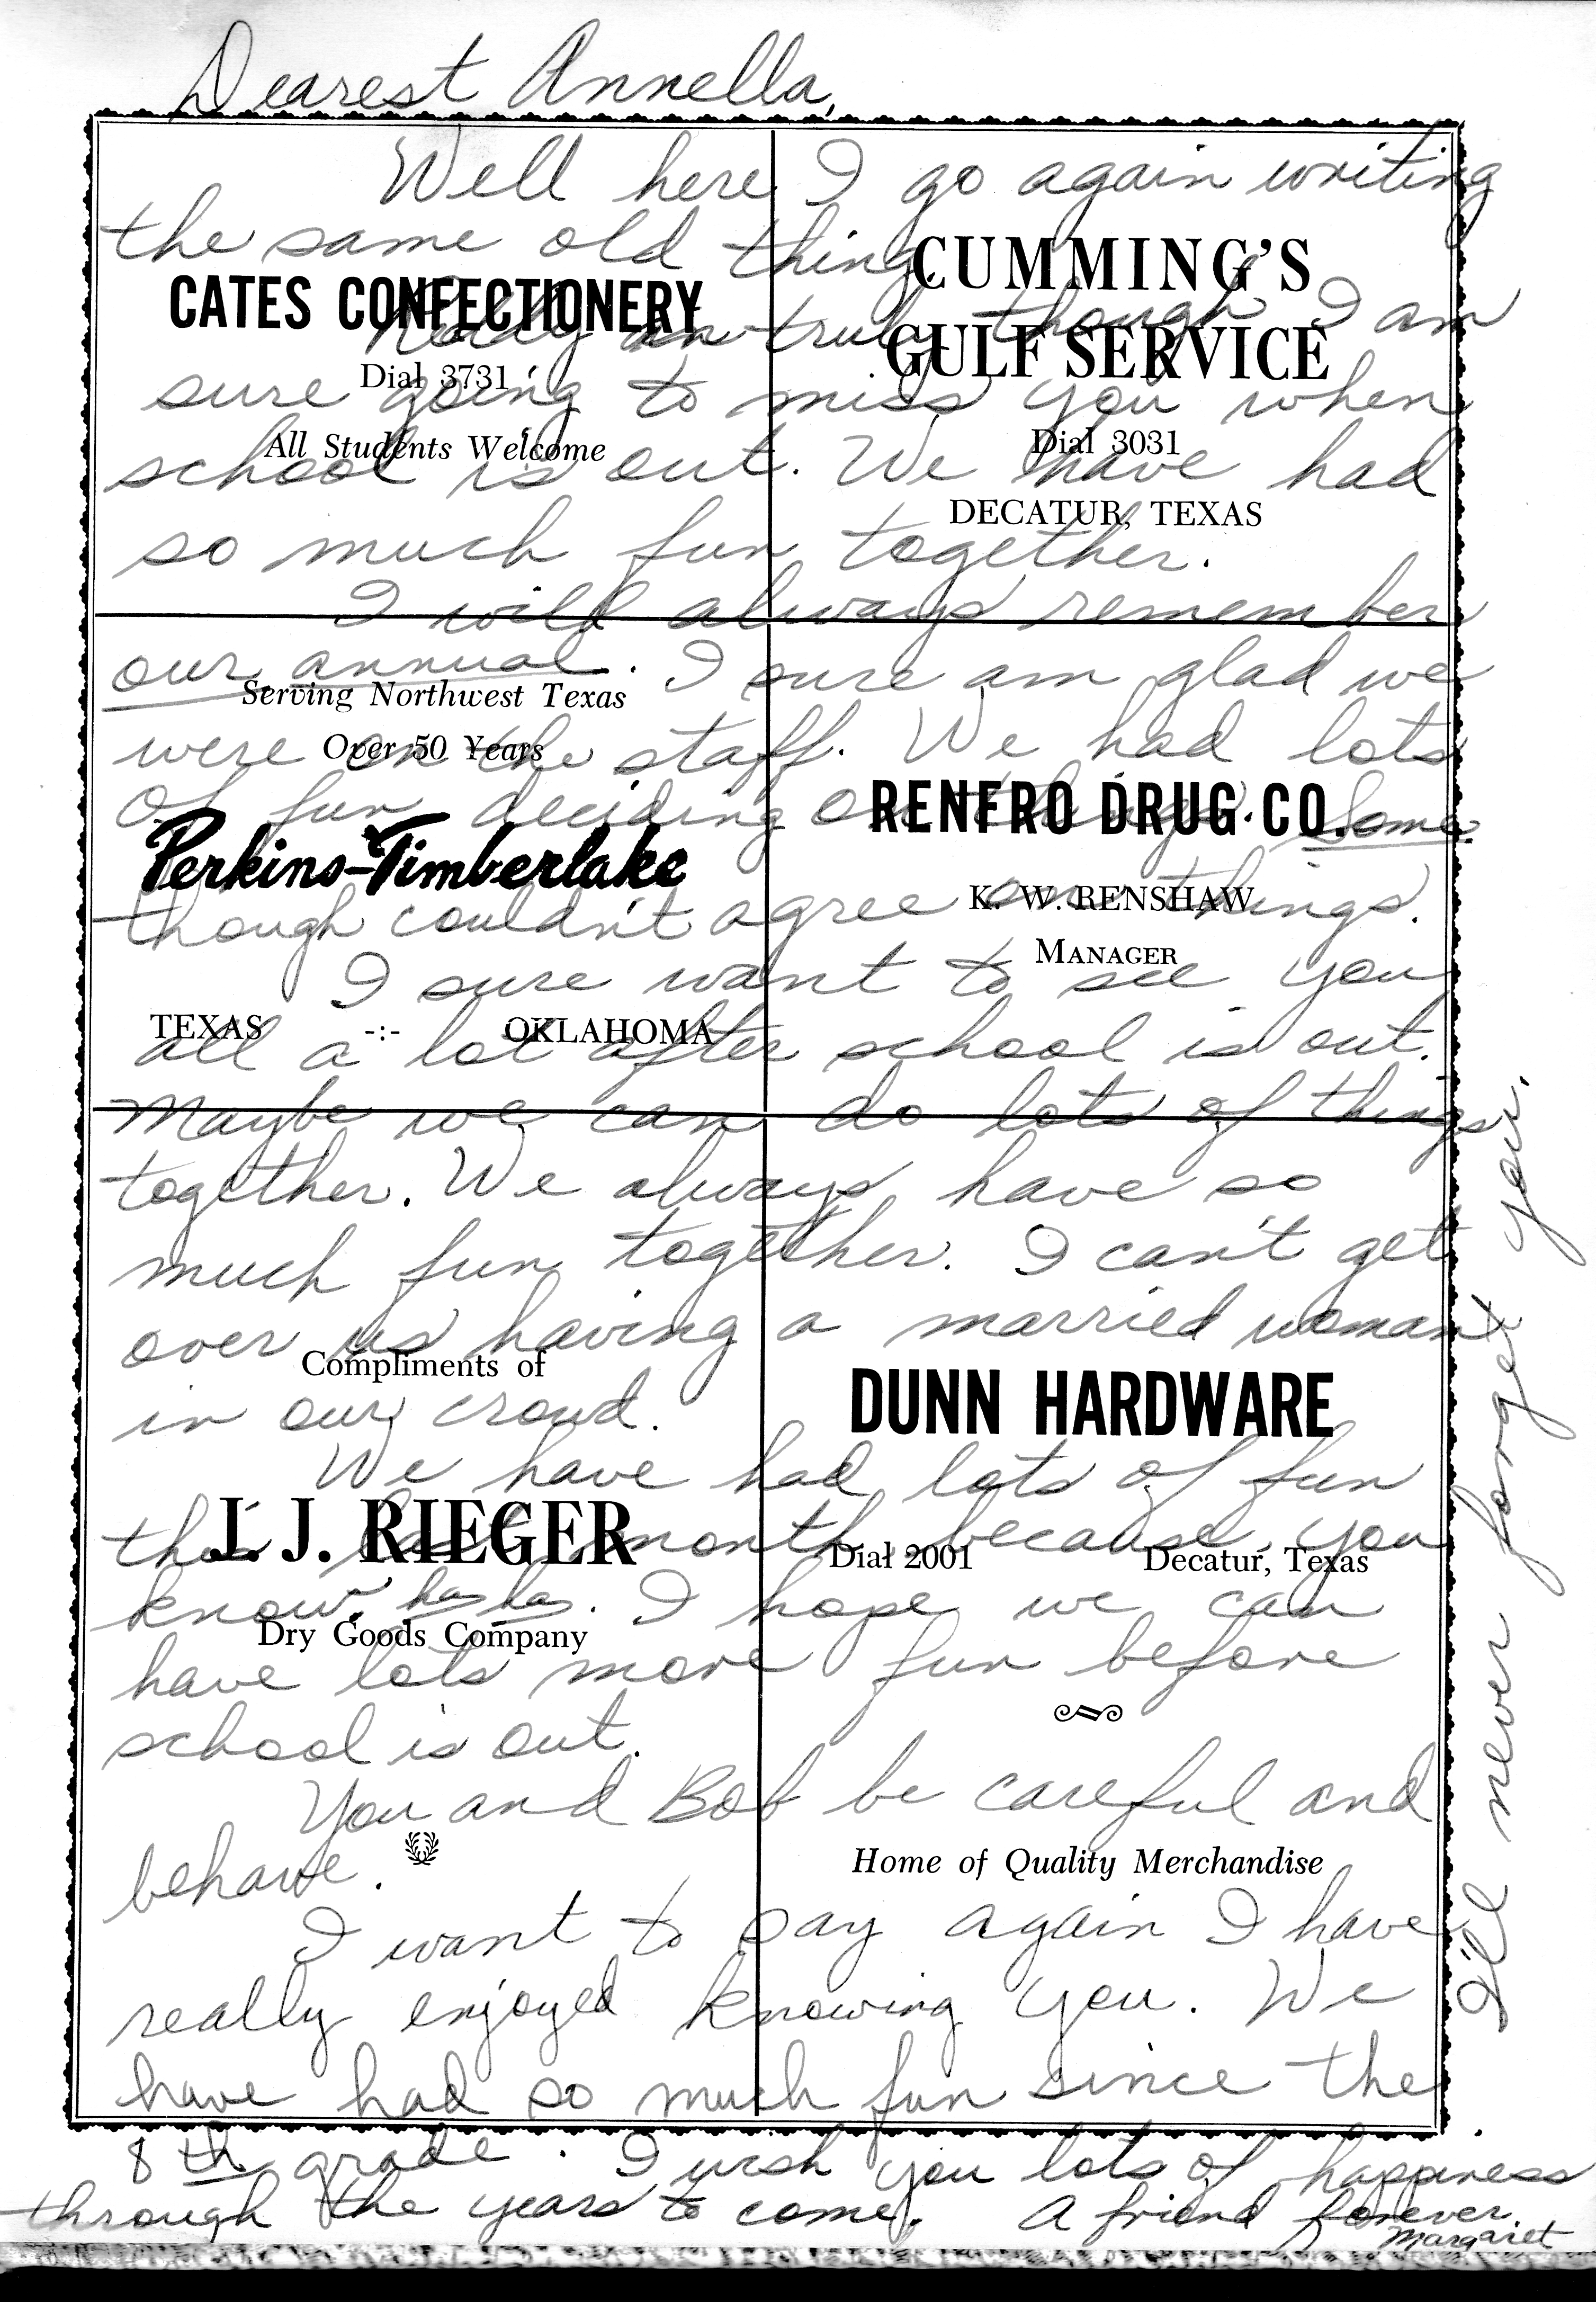 Dearest Annella,
Well here I go again writing
the same old thing.
Really an truly though I am
sure going to miss you when
school is out. We have had
so much fun together.
I will always remember
our annual. I sure am glad we
were on the staff. We had lots
of fun deciding on things. Some
though couldn't agree on things.
I sure want to see you
all a lot after school is out.
Maybe we can do lots of things
together. We always have so
much fun together. I can't get
over us having a married woman
in our crowd.
We have had lots of fun
this last month because, you
know, ha ha. I hope we can
have lots more fun before
school is out.
You and Bob be careful and
behave.
I want to say again I have
really enjoyed knowing you. We
have had so much fun since the
8th grade. I wish you lots of happiness
through the years to come. A friend forever,
Margaret
I'll never forget you.
CATES CONFECTIONERY
Dial 3731
All Students Welcome
CUMMING'S
GULF SERVICE
Dial 3031
DECATUR, TEXAS
Serving Northwest Texas
Over 50 Years
Perkins-Timberlake
TEXAS -:- OKLAHOMA
RENFRO DRUG CO.
K. W. RENSHAW
MANAGER
Compliments of
J. J. RIEGER
Dry Goods Company
DUNN HARDWARE
Dial 2001 Decatur, Texas
Home of Quality Merchandise